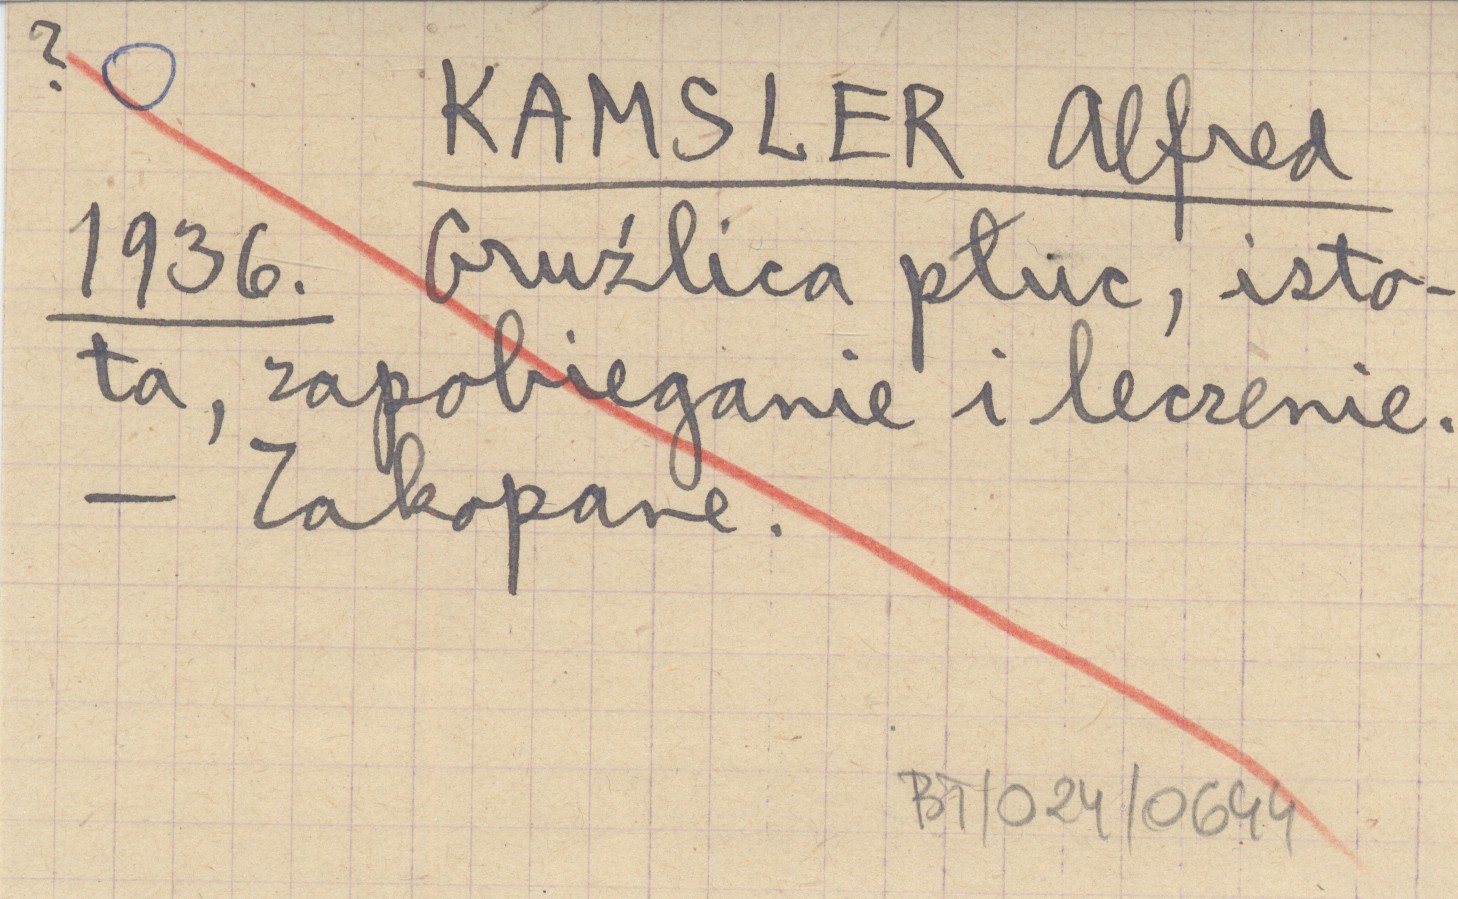 ?
KAMSLER Alfred
1936. Gruźlica płuc, isto-
ta, zapobieganie i leczenie.
— Zakopane.
BT/024/0644